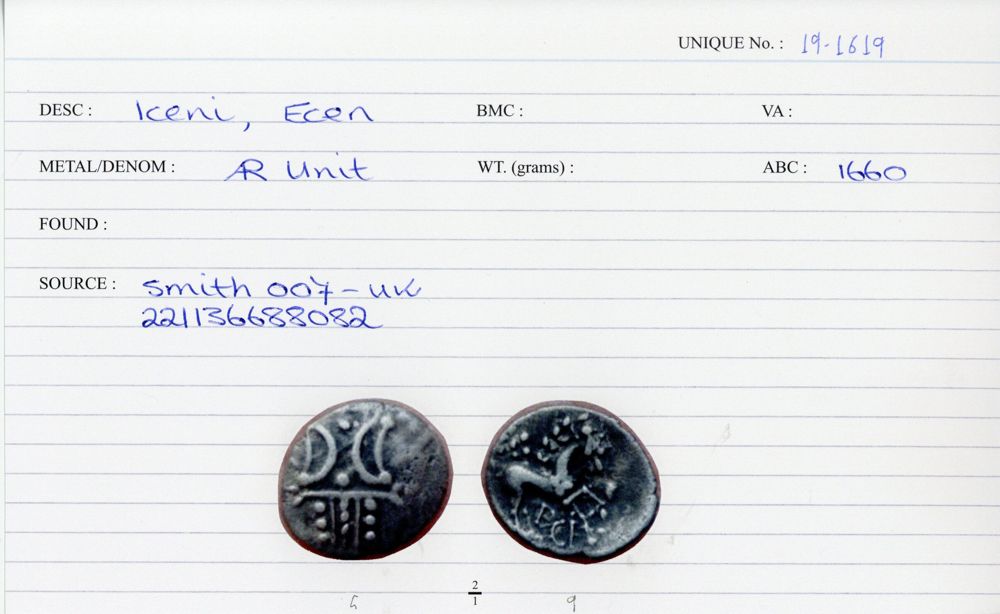 UNIQUE No. : 19-1619
DESC : Iceni, Ecen BMC : VA :
METAL/DENOM : AR Unit WT. (grams) : ABC : 1660
FOUND :
SOURCE : smith 007-uk
221136688082
2
1
9